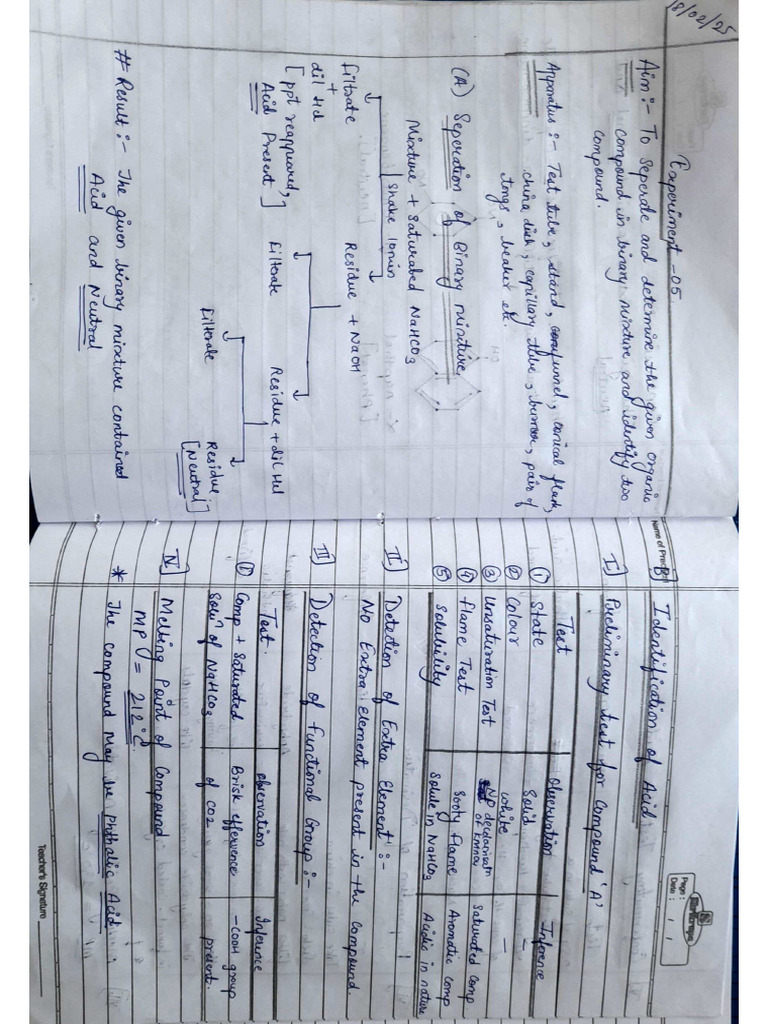 18/02/25
Experiment - 05
Aim :- To seperate and determine the given organic
compound in binary mixture and identify two
compound.
Apparatus :- Test tube, stand, funnel, conical flask,
china dish, capillary tube, burner, pair of
tongs, beaker etc.
(A) Seperation of Binary mixture
Mixture + Saturated NaHCO3
Shake 10min
Filtrate
+
dil Hcl
[ppt reappeared,
Acid Present]
Residue + NaOH
Filterate
Residue + dil Hcl
Filterate
Residue
[Neutral]
# Result :- The given binary mixture contained
Acid and Neutral
Name of Practical
Page :
Date : / /
B) Identification of Acid
I] Preliminary test for Compound 'A'
Test Observation Inference
① State Solid -
② Colour white -
③ Unsaturation Test No decolarisatn of KMnO4 Saturated Comp
④ Flame Test Sooty flame Aromatic Comp
⑤ Solubility Soluble in NaHCO3 Acidic in nature
II] Detection of Extra Element :-
No Extra Element present in the Compound.
III] Detection of Functional Group :-
Test. Observation Inference
① Comp + Saturated Brisk effervence -COOH group
Solⁿ of NaHCO3 of CO2 present.
IV] Melting Point of Compound
MP = 212°C.
* The Compound may be Phthalic Acid.
Teacher's Signature